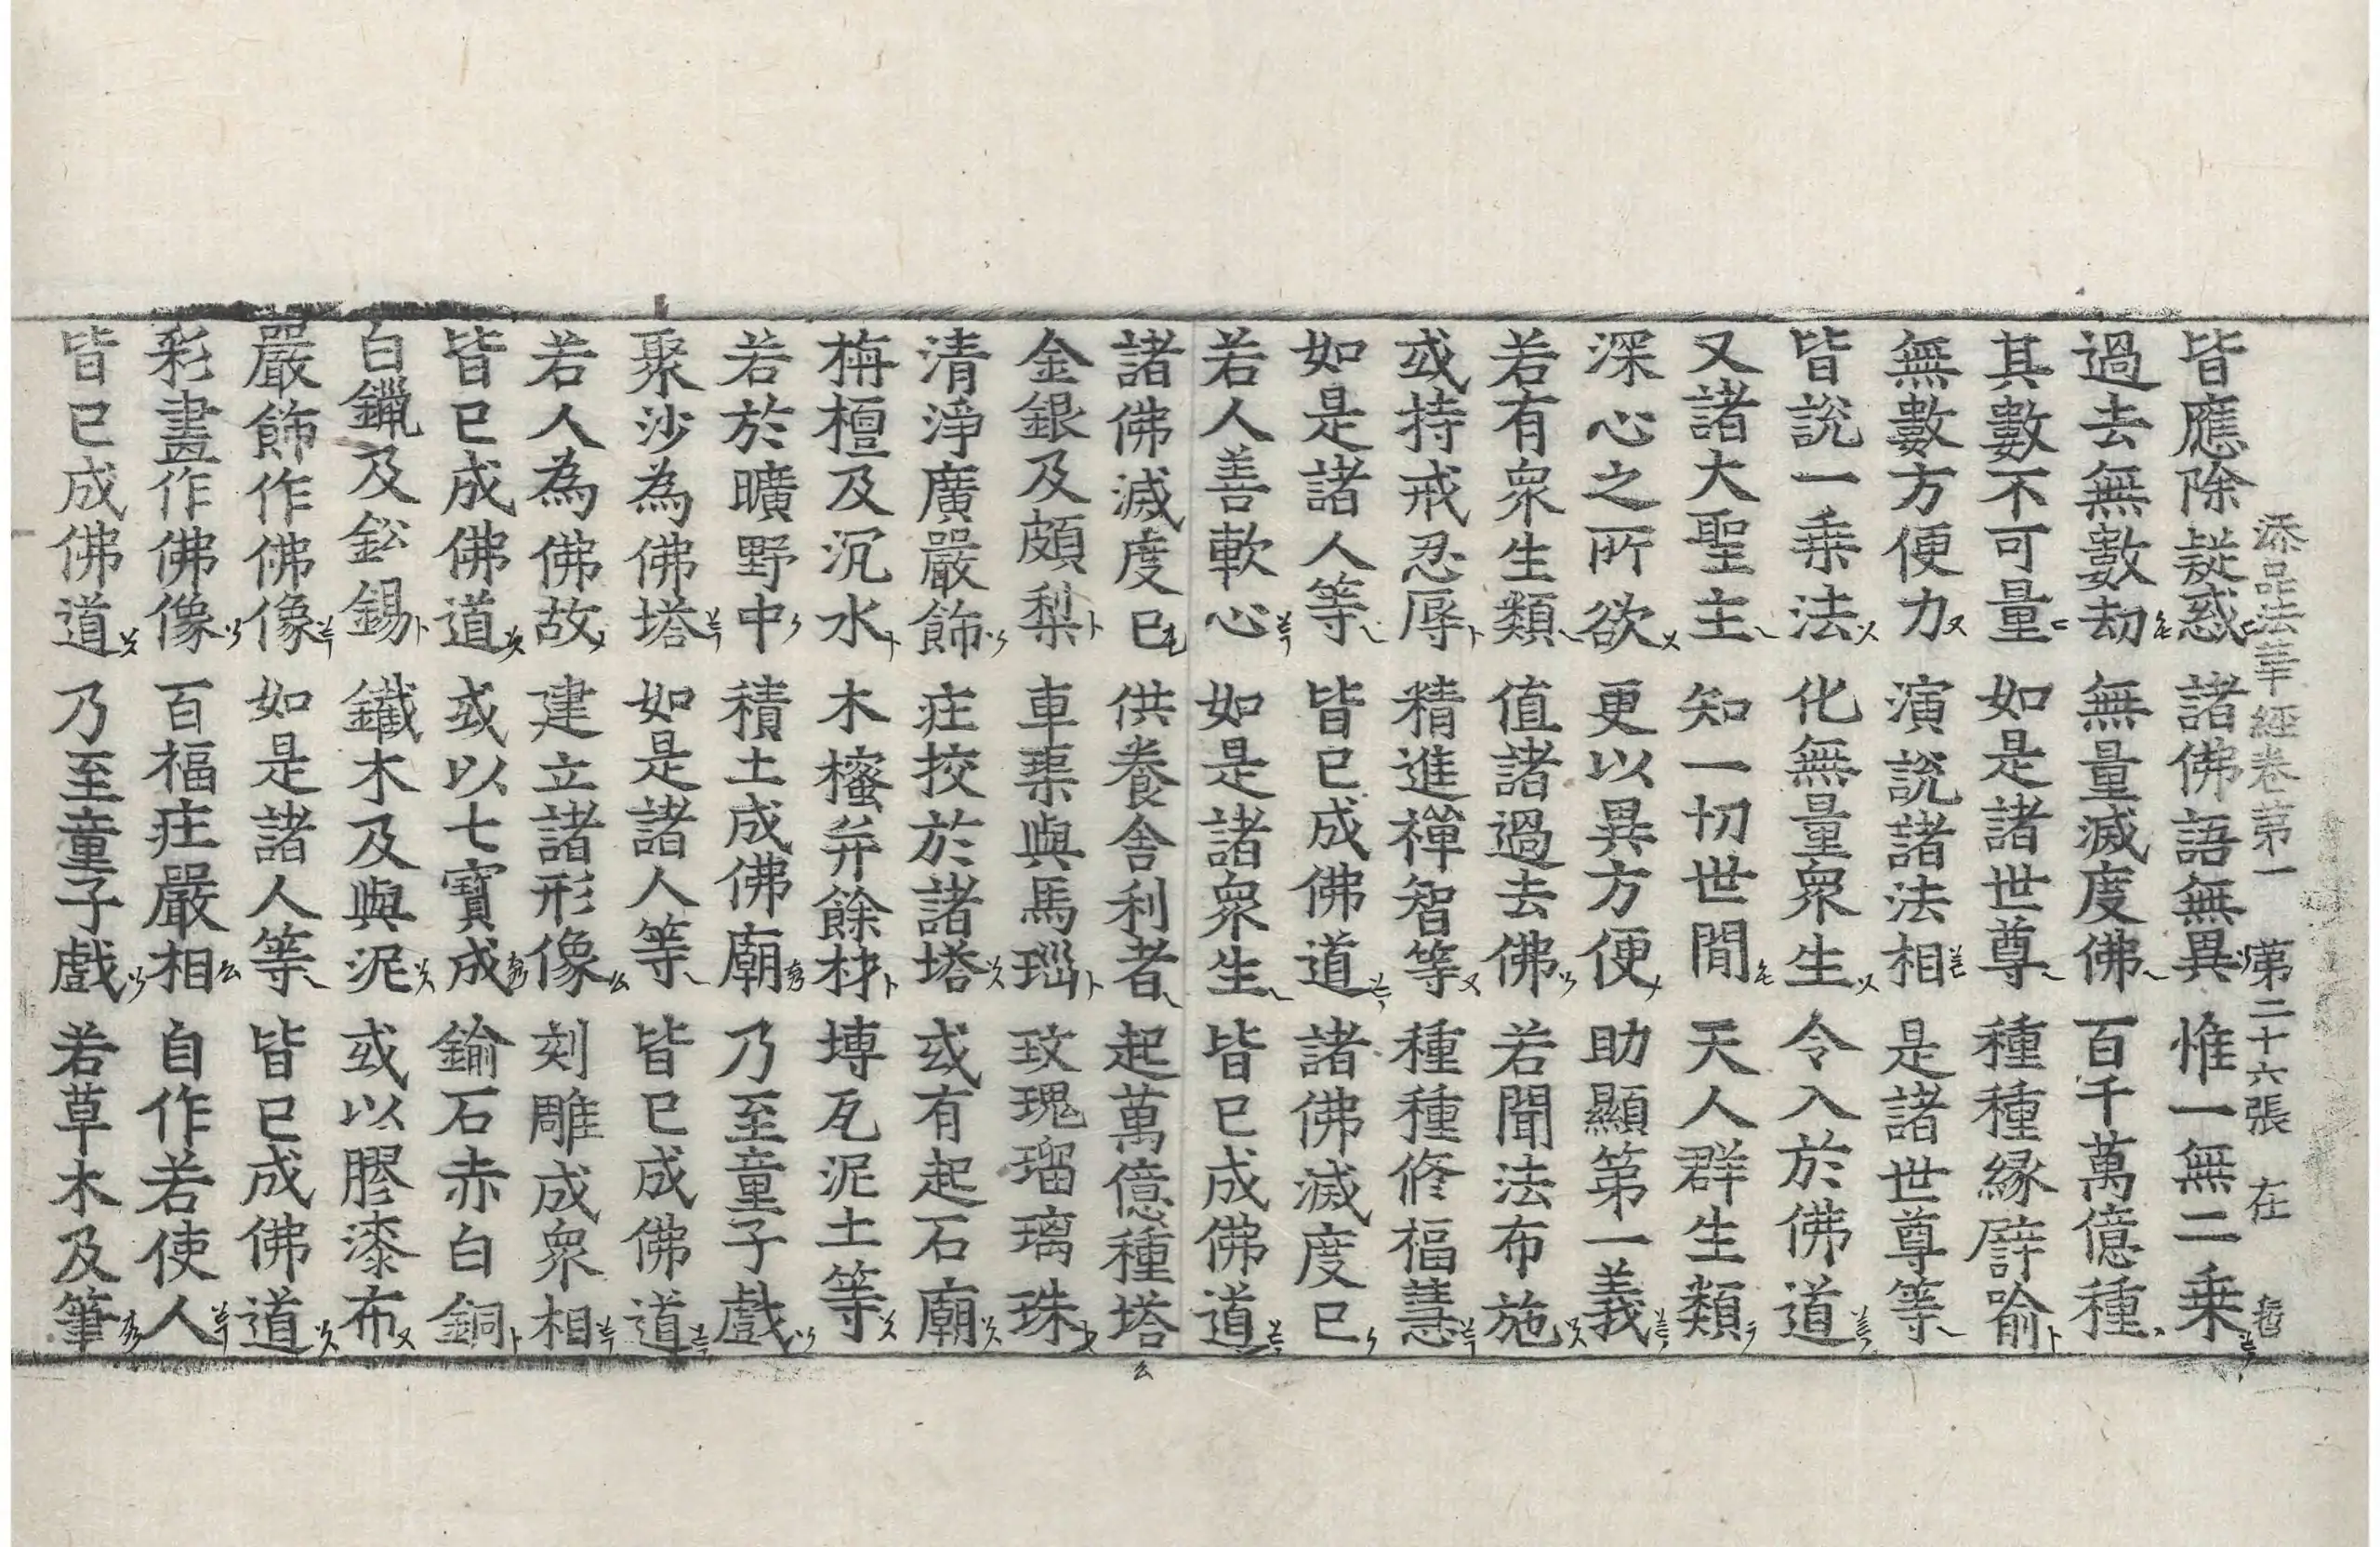 添品法華經卷第一 第二十六張 在
皆應除疑惑 諸佛語無異 惟一無二乗
過去無數劫 無量滅度佛 百千萬億種
其數不可量 如是諸世尊 種種縁譬喻
無數方便力 演說諸法相 是諸世尊等
皆說一乗法 化無量衆生 令入於佛道
又諸大聖主 知一切世間 天人群生類
深心之所欲 更以異方便 助顯第一義
若有衆生類 值諸過去佛 若聞法布施
或持戒忍辱 精進禪智等 種種修福慧
如是諸人等 皆已成佛道 諸佛滅度已
若人善軟心 如是諸衆生 皆已成佛道
諸佛滅度已 供養舍利者 起萬億種塔
金銀及頗梨 車𤦲與馬瑙 玫瑰瑠璃珠
清淨廣嚴飾 庄挍於諸塔 或有起石廟
栴檀及沉水 木櫁并餘材 塼瓦泥土等
若於曠野中 積土成佛廟 乃至童子戲
聚沙為佛塔 如是諸人等 皆已成佛道
若人為佛故 建立諸形像 刻雕成衆相
皆已成佛道 或以七寶成 鍮石赤白銅
白鑞及鈆錫 鐵木及與泥 或以膠漆布
嚴飾作佛像 如是諸人等 皆已成佛道
彩畫作佛像 百福庄嚴相 自作若使人
皆已成佛道 乃至童子戲 若草木及筆